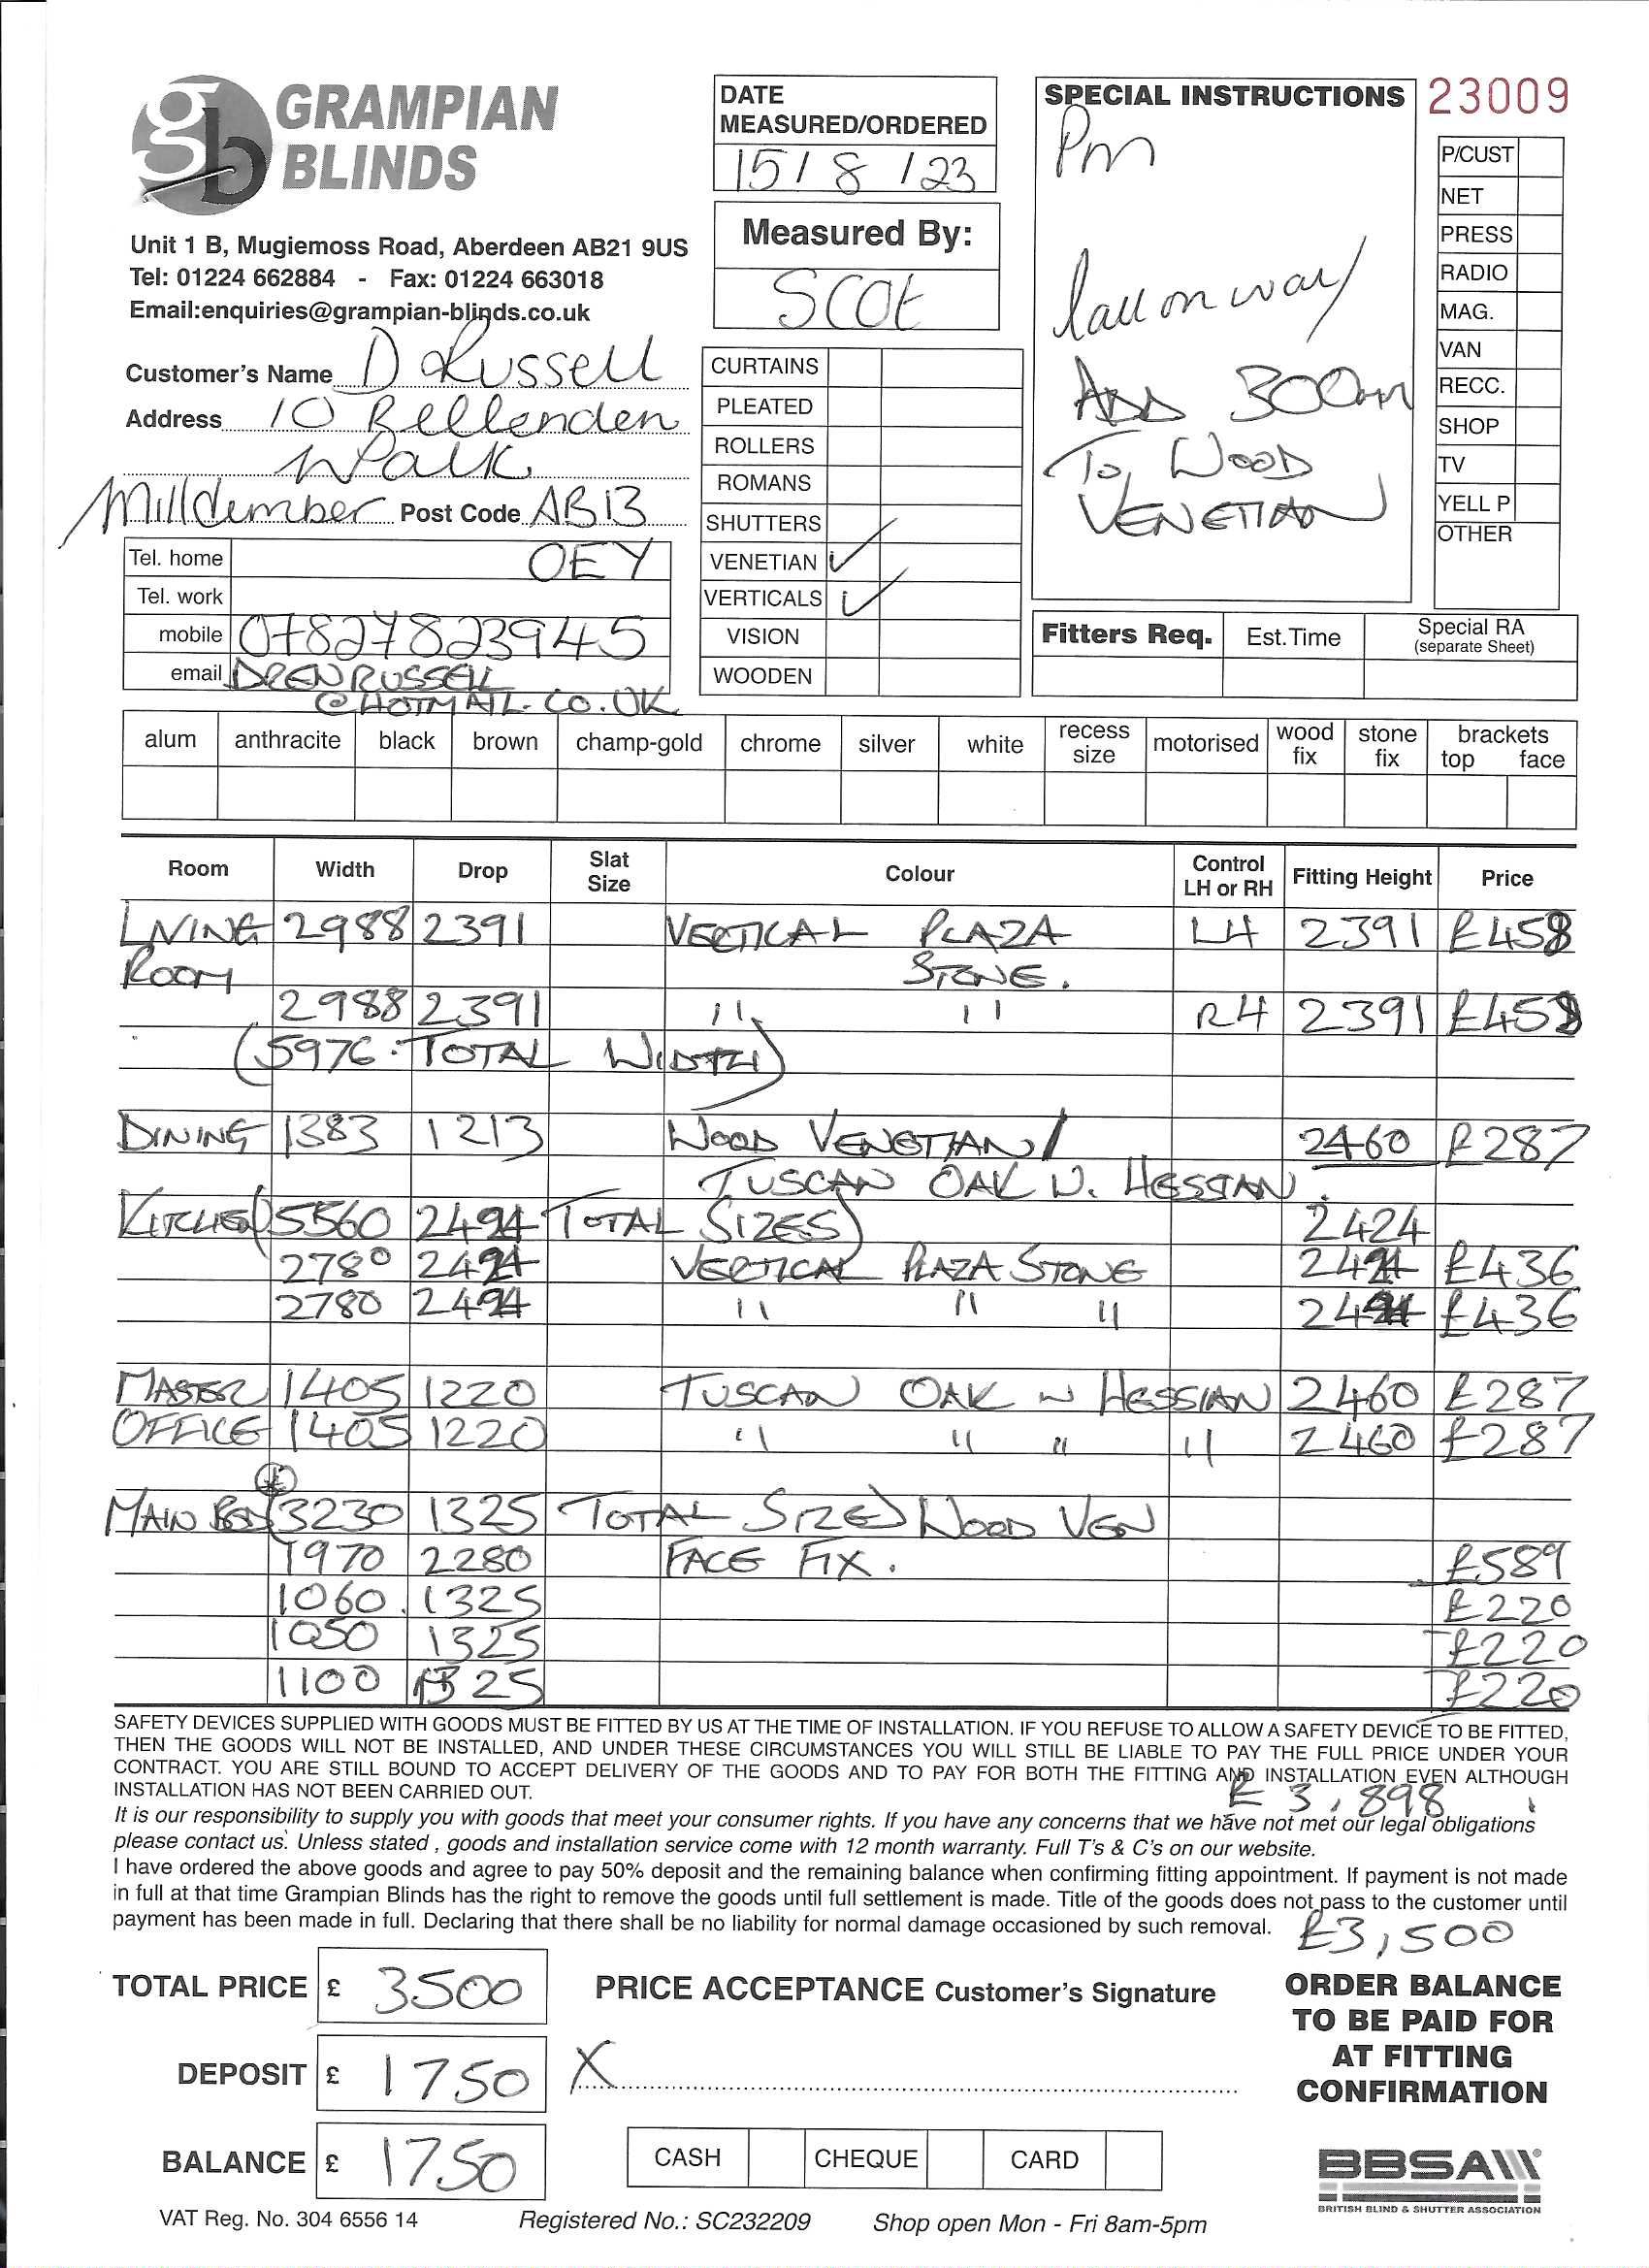 GRAMPIAN
BLINDS
Unit 1 B, Mugiemoss Road, Aberdeen AB21 9US
Tel: 01224 662884 - Fax: 01224 663018
Email:enquiries@grampian-blinds.co.uk
DATE
MEASURED/ORDERED
15/8/23
Measured By:
SCOt
SPECIAL INSTRUCTIONS
23009
Pm
Call on way
ADD 300mm
To WOOD
VENETIAN
P/CUST
NET
PRESS
RADIO
MAG.
VAN
RECC.
SHOP
TV
YELL P
OTHER
Customer's Name D Russell
Address 10 Bellenden
Walk
Milldumber Post Code AB13
Tel. home 0EY
Tel. work
mobile 07827823945
email DRENRUSSELL
@HOTMAIL.CO.UK
CURTAINS
PLEATED
ROLLERS
ROMANS
SHUTTERS
VENETIAN ✓
VERTICALS ✓
VISION
WOODEN
Fitters Req. Est.Time Special RA
(separate Sheet)
alum anthracite black brown champ-gold chrome silver white recess size motorised wood fix stone fix brackets top face
Room Width Drop Slat Size Colour Control LH or RH Fitting Height Price
LIVING 2988 2391 VERTICAL PLAZA LH 2391 £458
ROOM STONE.
2988 2391 " " RH 2391 £458
(5976 . TOTAL WIDTH)
DINING 1383 1213 WOOD VENETIAN/ 2460 £287
TUSCAN OAK W. HESSIAN.
KITCHEN (5560 2424 TOTAL SIZES) 2424
2780 2424 VERTICAL PLAZA STONE 2424 £436
2780 2424 " " " 2424 £436
MASTER 1405 1220 TUSCAN OAK W HESSIAN 2460 £287
OFFICE 1405 1220 " " " " 2460 £287
MAIN BED (3230 1325 TOTAL SIZE) WOOD VEN
1970 2280 FACE FIX. £589
1060 1325 £220
1050 1325 £220
1100 1325 £220
SAFETY DEVICES SUPPLIED WITH GOODS MUST BE FITTED BY US AT THE TIME OF INSTALLATION. IF YOU REFUSE TO ALLOW A SAFETY DEVICE TO BE FITTED,
THEN THE GOODS WILL NOT BE INSTALLED, AND UNDER THESE CIRCUMSTANCES YOU WILL STILL BE LIABLE TO PAY THE FULL PRICE UNDER YOUR
CONTRACT. YOU ARE STILL BOUND TO ACCEPT DELIVERY OF THE GOODS AND TO PAY FOR BOTH THE FITTING AND INSTALLATION EVEN ALTHOUGH
INSTALLATION HAS NOT BEEN CARRIED OUT.
£3,898
It is our responsibility to supply you with goods that meet your consumer rights. If you have any concerns that we have not met our legal obligations
please contact us. Unless stated , goods and installation service come with 12 month warranty. Full T's & C's on our website.
I have ordered the above goods and agree to pay 50% deposit and the remaining balance when confirming fitting appointment. If payment is not made
in full at that time Grampian Blinds has the right to remove the goods until full settlement is made. Title of the goods does not pass to the customer until
payment has been made in full. Declaring that there shall be no liability for normal damage occasioned by such removal.
£3,500
TOTAL PRICE £ 3500
PRICE ACCEPTANCE Customer's Signature
DEPOSIT £ 1750
X
BALANCE £ 1750
CASH CHEQUE CARD
ORDER BALANCE
TO BE PAID FOR
AT FITTING
CONFIRMATION
BBSA
BRITISH BLIND & SHUTTER ASSOCIATION
VAT Reg. No. 304 6556 14 Registered No.: SC232209 Shop open Mon - Fri 8am-5pm